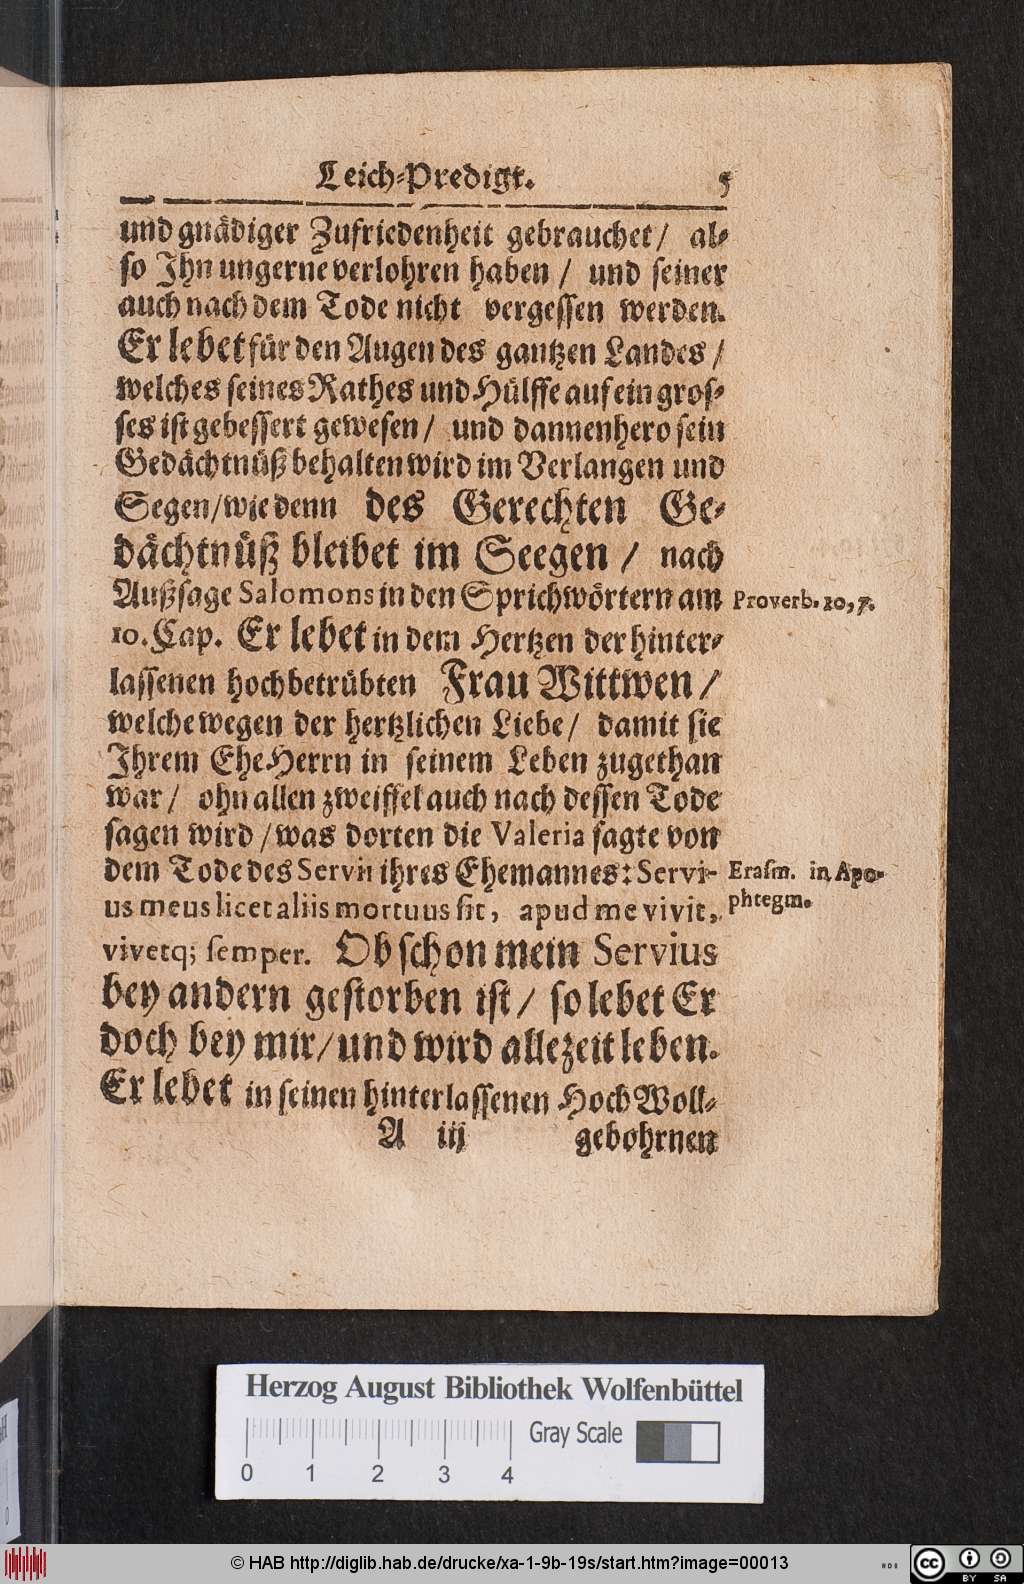 Leich-Predigt. 5
und gnädiger Zufriedenheit gebrauchet / al-
so Ihn ungerne verlohren haben / und seiner
auch nach dem Tode nicht vergessen werden.
Er lebet für den Augen des gantzen Landes /
welches seines Rathes und Hülffe auf ein gros-
ses ist gebessert gewesen / und dannenhero sein
Gedächtnüß behalten wird im Verlangen und
Segen / wie denn des Gerechten Ge-
dächtnüß bleibet im Seegen / nach
Außsage Salomons in den Sprichwörtern am
Proverb. 10, 7.
10. Cap. Er lebet in dem Hertzen der hinter-
lassenen hochbetrübten Frau Wittwen /
welche wegen der hertzlichen Liebe / damit sie
Ihrem EheHerrn in seinem Leben zugethan
war / ohn allen zweiffel auch nach dessen Tode
sagen wird / was dorten die Valeria sagte von
dem Tode des Servii ihres Ehemannes: Servi-
Erasm. in Apo-
phtegm.
us meus licet aliis mortuus sit, apud me vivit,
vivetq; semper. Ob schon mein Servius
bey andern gestorben ist / so lebet Er
doch bey mir / und wird allezeit leben.
Er lebet in seinen hinterlassenen HochWoll-
A iij gebohrnen
Herzog August Bibliothek Wolfenbüttel
Gray Scale
0 1 2 3 4
© HAB http://diglib.hab.de/drucke/xa-1-9b-19s/start.htm?image=00013
cc BY SA